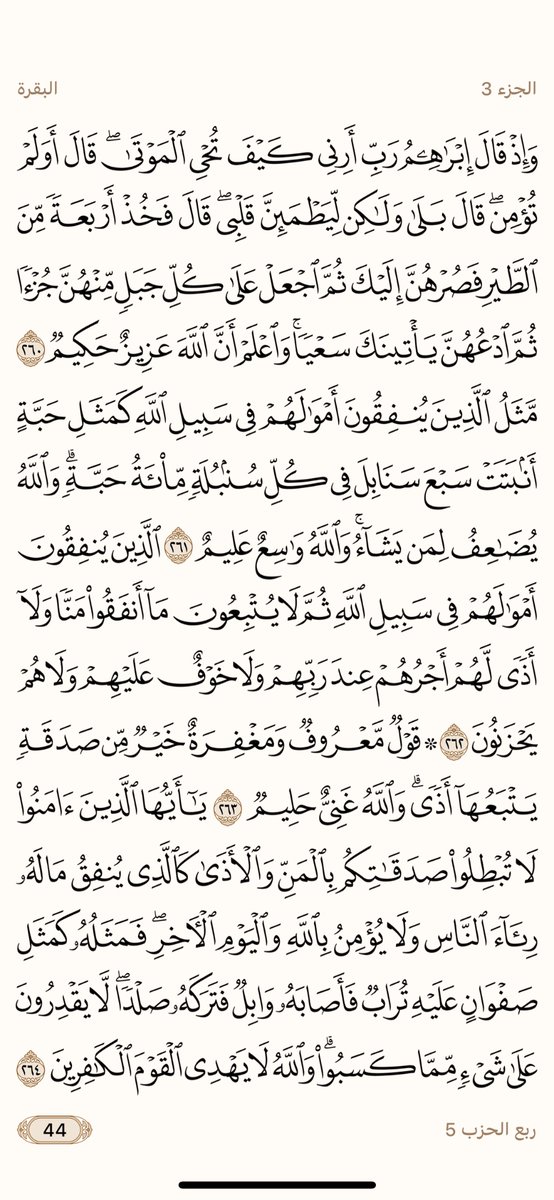 الجزء 3 البقرة
وَإِذْ قَالَ إِبْرَٰهِـۧمُ رَبِّ أَرِنِى كَيْفَ تُحْىِ ٱلْمَوْتَىٰ ۖ قَالَ أَوَلَمْ
تُؤْمِن ۖ قَالَ بَلَىٰ وَلَـٰكِن لِّيَطْمَئِنَّ قَلْبِى ۖ قَالَ فَخُذْ أَرْبَعَةً مِّنَ
ٱلطَّيْرِ فَصُرْهُنَّ إِلَيْكَ ثُمَّ ٱجْعَلْ عَلَىٰ كُلِّ جَبَلٍ مِّنْهُنَّ جُزْءًا
ثُمَّ ٱدْعُهُنَّ يَأْتِينَكَ سَعْيًا ۚ وَٱعْلَمْ أَنَّ ٱللَّهَ عَزِيزٌ حَكِيمٌ ٢٦٠
مَّثَلُ ٱلَّذِينَ يُنفِقُونَ أَمْوَٰلَهُمْ فِى سَبِيلِ ٱللَّهِ كَمَثَلِ حَبَّةٍ
أَنۢبَتَتْ سَبْعَ سَنَابِلَ فِى كُلِّ سُنۢبُلَةٍ مِّا۟ئَةُ حَبَّةٍ ۗ وَٱللَّهُ
يُضَـٰعِفُ لِمَن يَشَآءُ ۚ وَٱللَّهُ وَٰسِعٌ عَلِيمٌ ٢٦١ ٱلَّذِينَ يُنفِقُونَ
أَمْوَٰلَهُمْ فِى سَبِيلِ ٱللَّهِ ثُمَّ لَا يُتْبِعُونَ مَآ أَنفَقُوا۟ مَنًّا وَلَآ
أَذًى لَّهُمْ أَجْرُهُمْ عِندَ رَبِّهِمْ وَلَا خَوْفٌ عَلَيْهِمْ وَلَا هُمْ
يَحْزَنُونَ ٢٦٢ * قَوْلٌ مَّعْرُوفٌ وَمَغْفِرَةٌ خَيْرٌ مِّن صَدَقَةٍ
يَتْبَعُهَآ أَذًى ۗ وَٱللَّهُ غَنِىٌّ حَلِيمٌ ٢٦٣ يَـٰٓأَيُّهَا ٱلَّذِينَ ءَامَنُوا۟
لَا تُبْطِلُوا۟ صَدَقَـٰتِكُم بِٱلْمَنِّ وَٱلْأَذَىٰ كَٱلَّذِى يُنفِقُ مَالَهُۥ
رِئَآءَ ٱلنَّاسِ وَلَا يُؤْمِنُ بِٱللَّهِ وَٱلْيَوْمِ ٱلْـَٔاخِرِ ۖ فَمَثَلُهُۥ كَمَثَلِ
صَفْوَانٍ عَلَيْهِ تُرَابٌ فَأَصَابَهُۥ وَابِلٌ فَتَرَكَهُۥ صَلْدًا ۖ لَّا يَقْدِرُونَ
عَلَىٰ شَىْءٍ مِّمَّا كَسَبُوا۟ ۗ وَٱللَّهُ لَا يَهْدِى ٱلْقَوْمَ ٱلْكَـٰفِرِينَ ٢٦٤
ربع الحزب 5 44